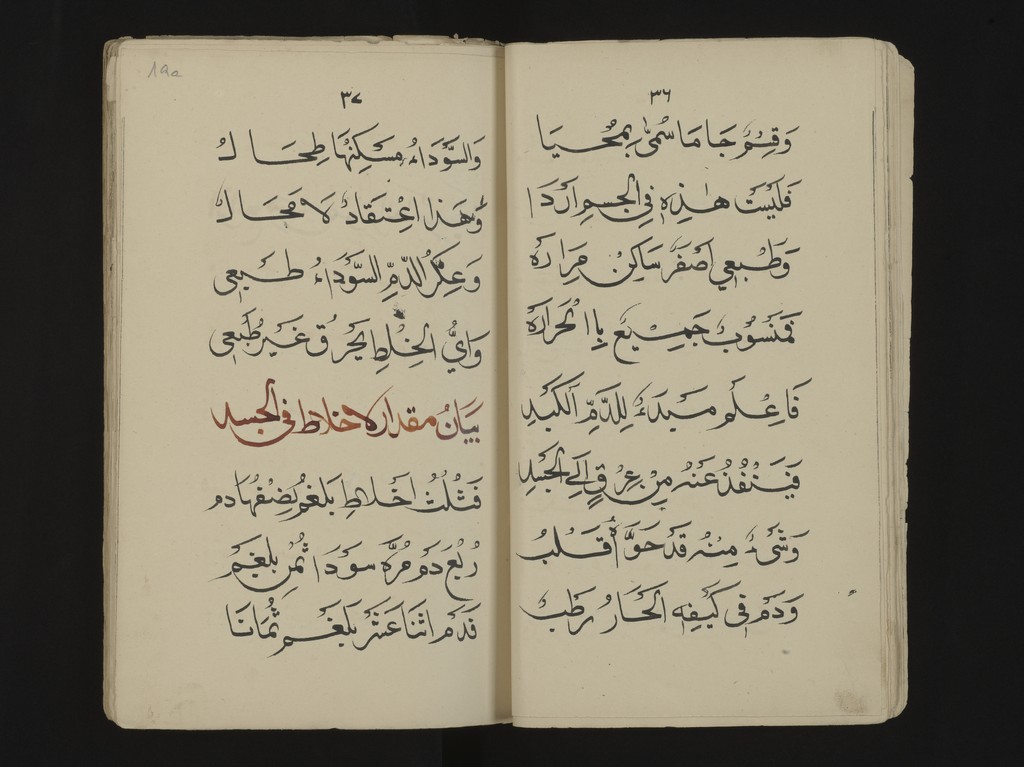 ٣٦
وَقِسْمٌ جَا مَا سُمّٰى بِمُحَّيَا
فَلَيْسَتْ هٰذِهِ فِي الْجِسْمِ ارْدَا
وَطَبْعِي اَصْفَرُ سَاكِنْ مَرَارَهْ
فَمَنْسُوبٌ جَمِيْعٌ بِاالْحَرَارَهْ
فَاعْلَم مَبْدَءُ لِلدَّمِّ الْكَبِدِ
فَيَنْفُذُ عَنْهُ مِنْ عِرْقٍ اِلَي الْجَسَدِ
وَشَىْءٌ مِنْهُ قَدْ حَوَّاهُ قَلْبُ
وَدَمْ فِي كَيْفِهِ الْحَارُ رَطْبُ
٣٧
وَالسَّوْدَاءُ مَسْكِنُهَا طِحَالُ
وَهَذَا اعْتِقَادُ لَا مَحَالُ
وَعَكَرُ الدَّمِّ السَّوْدَاءُ طَبْعِي
وَايُّ الْخِلْطِ يُحْرَقْ غَيْرُ طَبْعِي
بَيَانُ مقدار لاخلاط فى الجسد
فَثُلُثُ اَخْلَاطِ بَلْغَمُ نِصْفُهَا دم
رُبْعُ دَمْ مُرَّهْ سَوْدَا ثُمْنُ بَلْغَمْ
فَدَمْ اثْنَا عَشَرْ بَلْغَمْ ثُمَانَا
١٩a